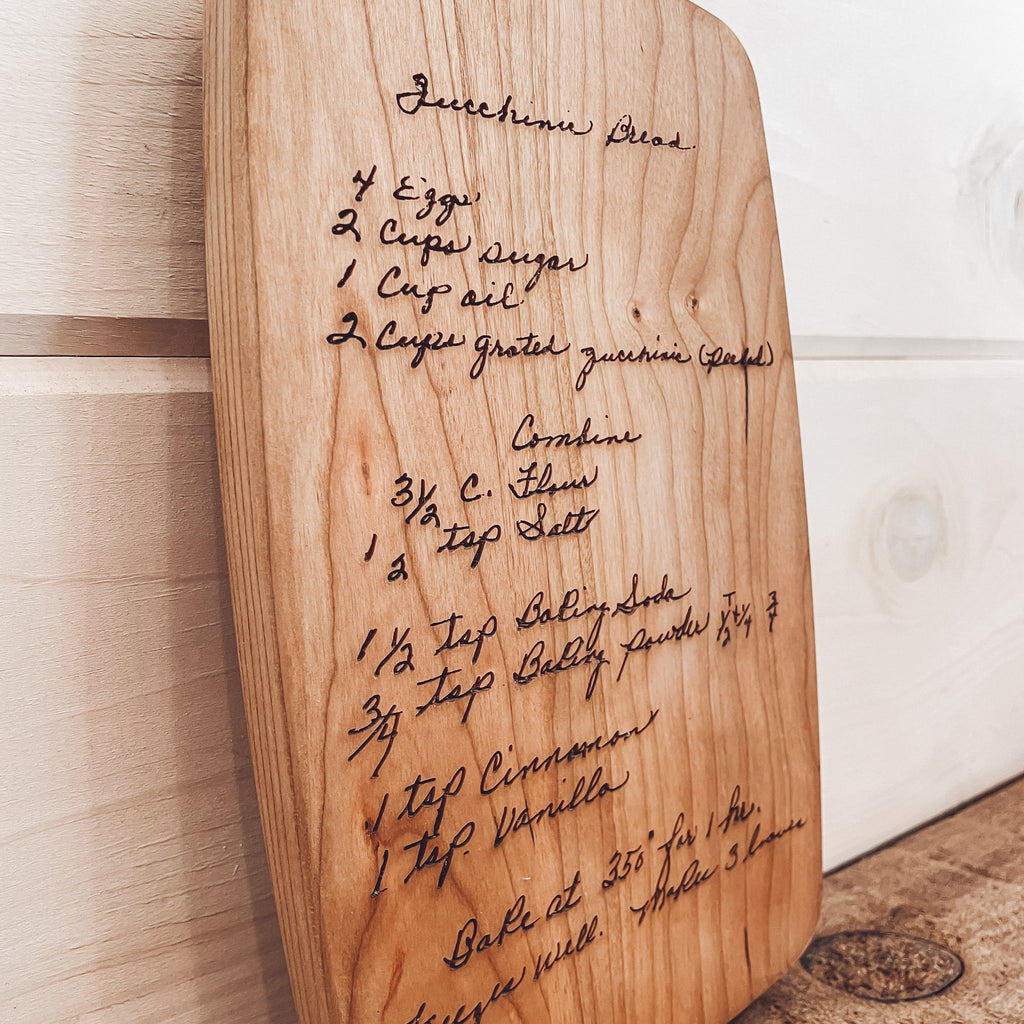 Zucchinie Bread.
4 Eggs
2 Cups sugar
1 Cup oil
2 Cups grated zucchinie (peeled)
Combine
3 1/2 C. Flour
1 2 tsp Salt
1 1/2 tsp Baking Soda
3/4 tsp Baking powder 1/2 T + 1/4 3/4
1 tsp Cinnamon
1 tsp. Vanilla
Bake at 350° for 1 hr.
Freezes well. Makes 3 loaves